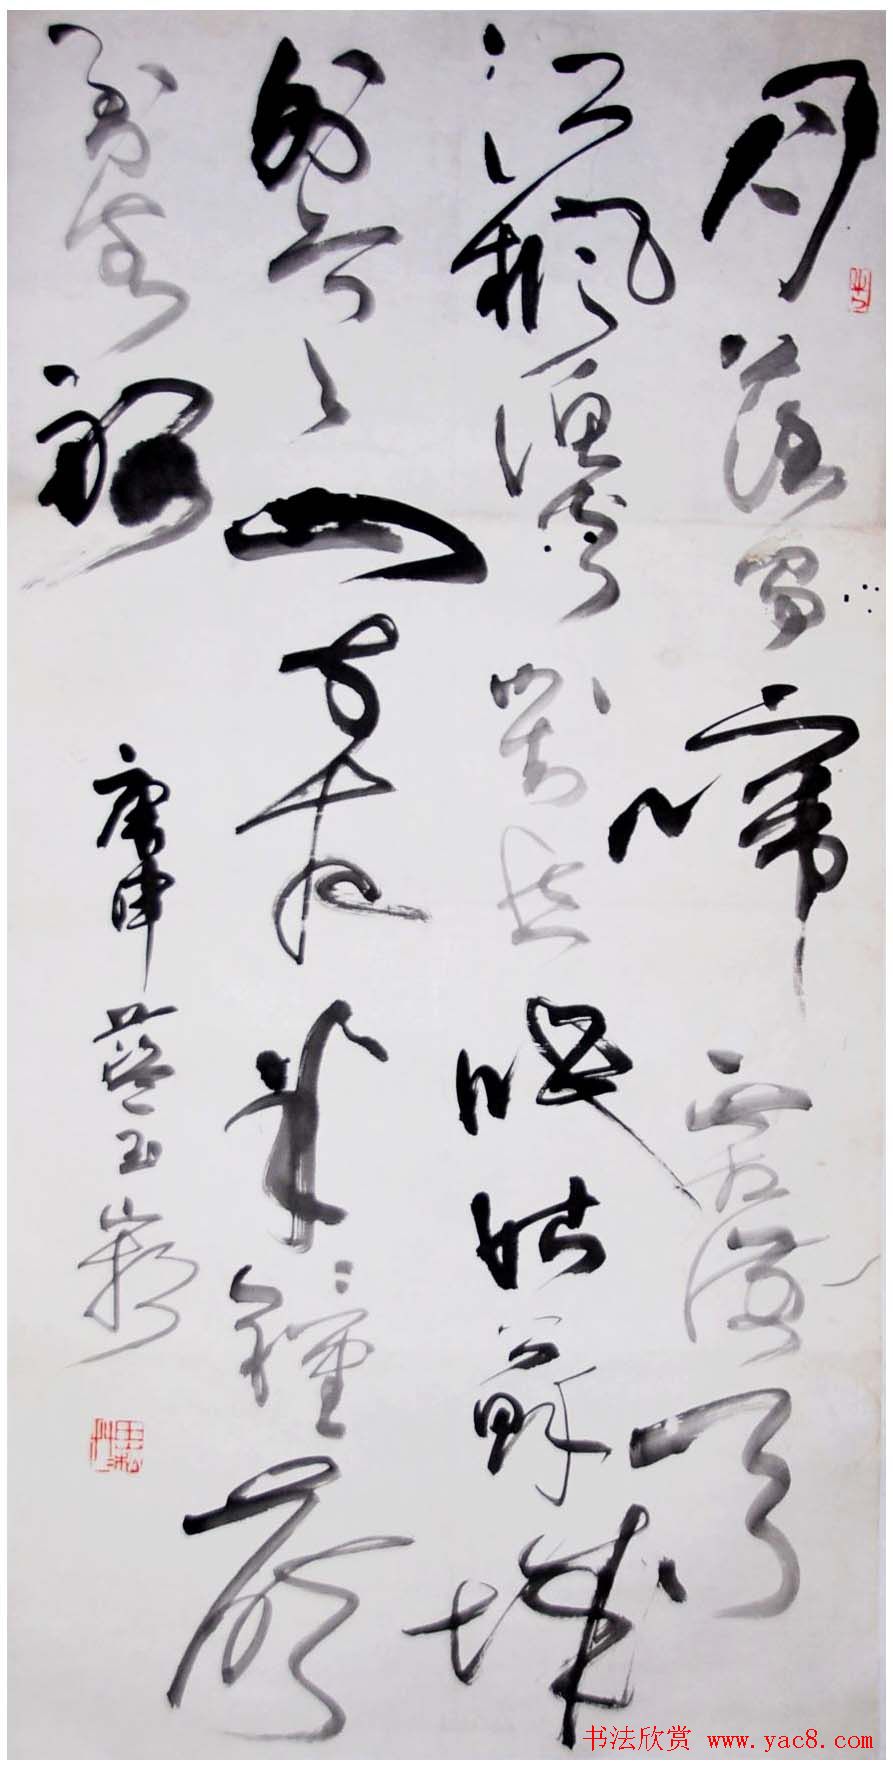 月落烏啼霜滿天
江楓漁火對愁眠姑蘇城
外寒山寺夜半鐘聲
到客船
庚申藍玉崧
书法欣赏 www.yac8.com